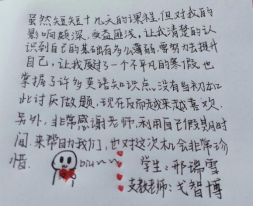 虽然短短十几天的课程,但对我的
影响颇深,受益匪浅,让我清楚的认
识到自己的基础有多么薄弱,需努力去提升
自己,让我度过了一个不平凡的寒假,也
掌握了许多英语知识点,没有当初如
此讨厌做题,现在反而越来越喜欢。
另外,非常感谢老师,利用自己假期时
间,来帮助我们,也对这次机会非常珍
惜。
biu
学生:邢瑞雪
支教老师:弋智博